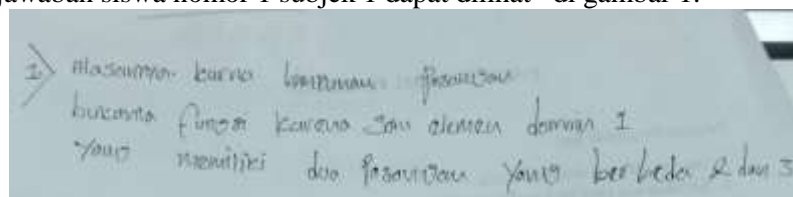 jawaban siswa nomor 1 subjek 1 dapat dilihat di gambar 1.
1) Alasannya karna himpunan pasangan
bukanna fungsi karena satu elemen domain 1
yang memiliki dua pasangan yang berbeda 2 dan 3